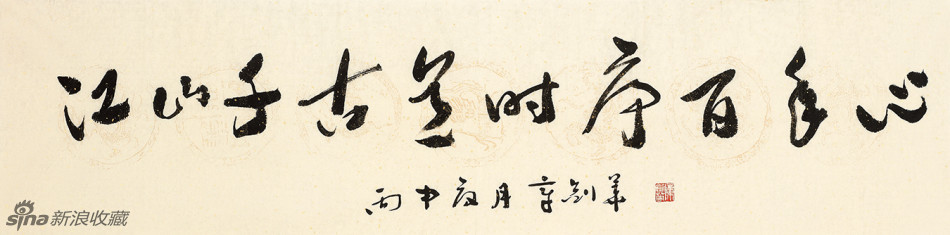 江山千古意时序百年心
丙申夏月章剑华
sina新浪收藏